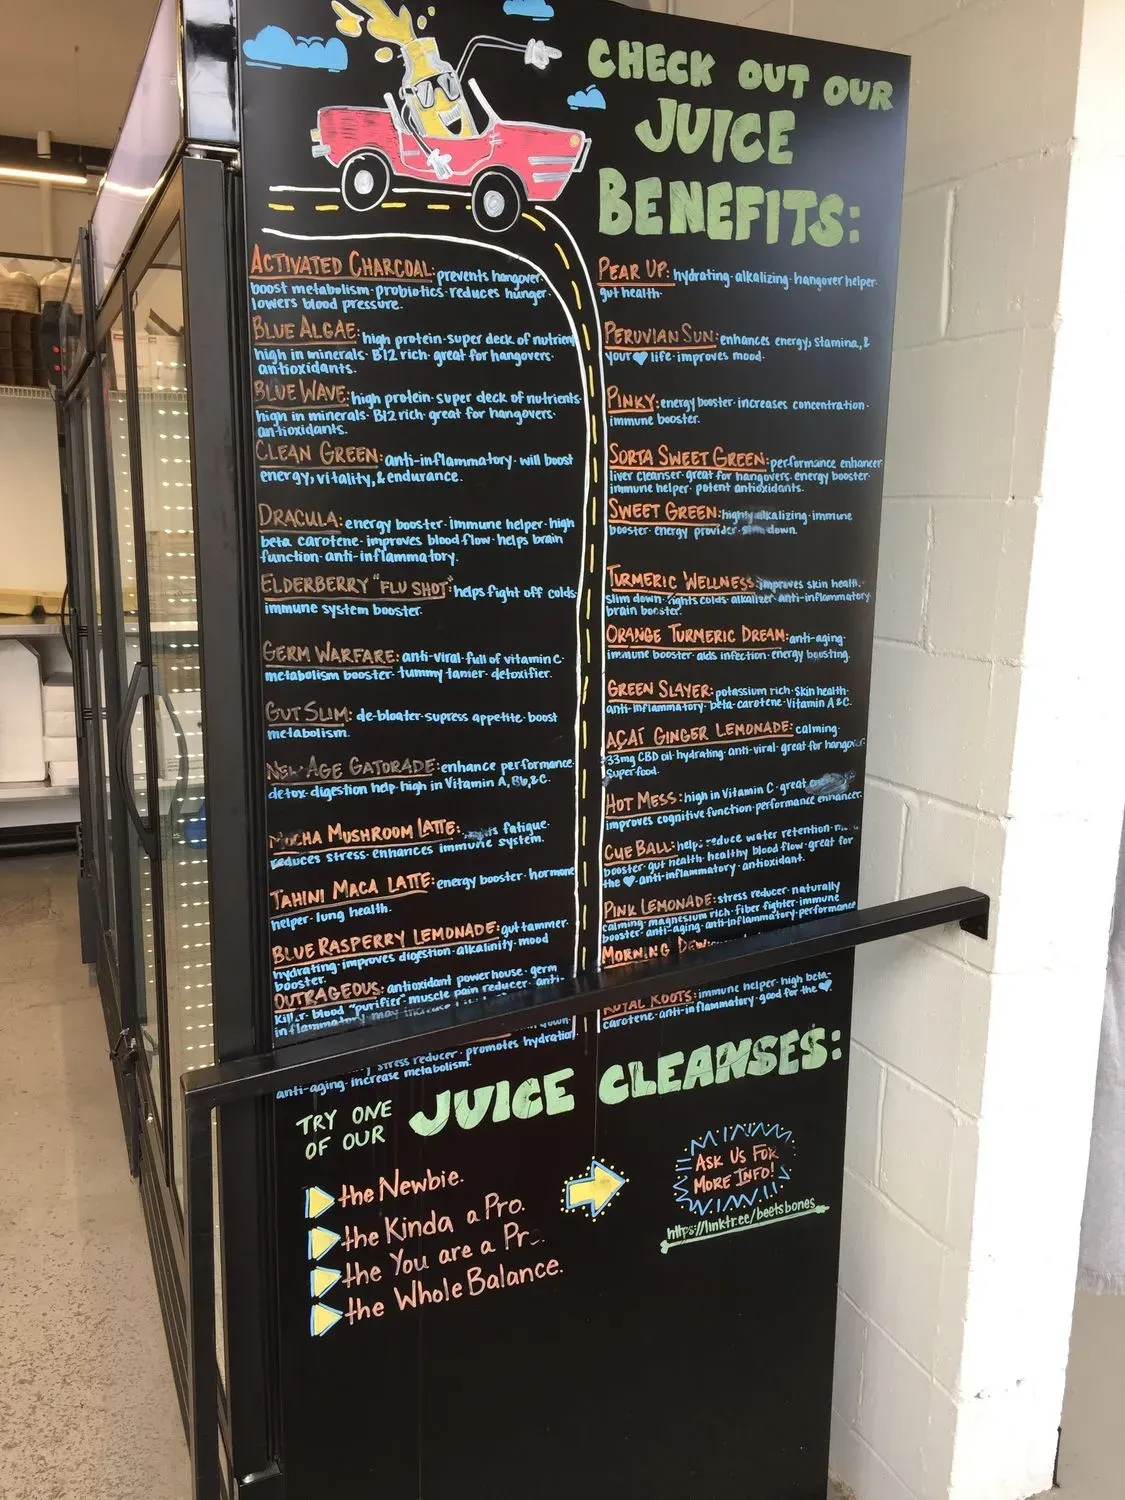 CHECK OUT OUR
JUICE
BENEFITS:
ACTIVATED CHARCOAL: prevents hangover·
boost metabolism·probiotics·reduces hunger·
lowers blood pressure.
BLUE ALGAE: high protein·super deck of nutrien
high in minerals·B12 rich·great for hangovers·
antioxidants.
BLUE WAVE: high protein·super deck of nutrients·
high in minerals·B12 rich·great for hangovers·
antioxidants.
CLEAN GREEN: anti-inflammatory·will boost
energy, vitality, & endurance.
DRACULA: energy booster·immune helper·high
beta carotene·improves blood flow·helps brain
function·anti-inflammatory.
ELDERBERRY "FLU SHOT": helps fight off colds·
immune system booster.
GERM WARFARE: anti-viral·full of vitamin C·
metabolism booster·tummy tamer·detoxifier.
GUT SLIM: de-bloater·supress appetite·boost
metabolism.
NEW AGE GATORADE: enhance performance·
detox·digestion help·high in Vitamin A, B6, & C·
MOCHA MUSHROOM LATTE: fatigue·
reduces stress·enhances immune system.
TAHINI MACA LATTE: energy booster·hormone
helper·lung health.
BLUE RASPERRY LEMONADE: gut tammer·
hydrating·improves digestion·alkalinity·mood
booster.
OUTRAGEOUS: antioxidant powerhouse·germ
killer·blood "purifier"·muscle pain reducer·anti-
inflammatory may increase
down·
stress reducer·promotes hydration·
anti-aging·increase metabolism.
PEAR UP: hydrating·alkalizing·hangover helper·
gut health·
PERUVIAN SUN: enhances energy, stamina, &
your ♥ life·improves mood·
PINKY: energy booster·increases concentration·
immune booster.
SORTA SWEET GREEN: performance enhancer
liver cleanser·great for hangovers·energy booster·
immune helper·potent antioxidants.
SWEET GREEN: highly alkalizing·immune
booster·energy provider·slim down.
TURMERIC WELLNESS: improves skin health·
slim down·fights colds·alkalizer·anti-inflammatory·
brain booster.
ORANGE TURMERIC DREAM: anti-aging·
immune booster·aids infection·energy boosting.
GREEN SLAYER: potassium rich·skin health·
anti-inflammatory·beta-carotene·Vitamin A & C.
AÇAÍ GINGER LEMONADE: calming·
33mg CBD oil·hydrating·anti-viral·great for hangover·
superfood.
HOT MESS: high in Vitamin C·great
improves cognitive function·performance enhancer.
CUE BALL: helps reduce water retention·
booster·gut health·healthy blood flow·great for
the ♥·anti-inflammatory·antioxidant.
PINK LEMONADE: stress reducer·naturally
calming·magnesium rich·fiber fighter·immune
booster·anti-aging·anti-inflammatory·performance
MORNING DEW:
ROYAL ROOTS: immune helper·high beta-
carotene·anti-inflammatory·good for the ♥.
TRY ONE
OF OUR
JUICE CLEANSES:
the Newbie.
the Kinda a Pro.
the You are a Pr
the Whole Balance.
ASK US FOR
MORE INFO!
https://linktr.ee/beetsbones